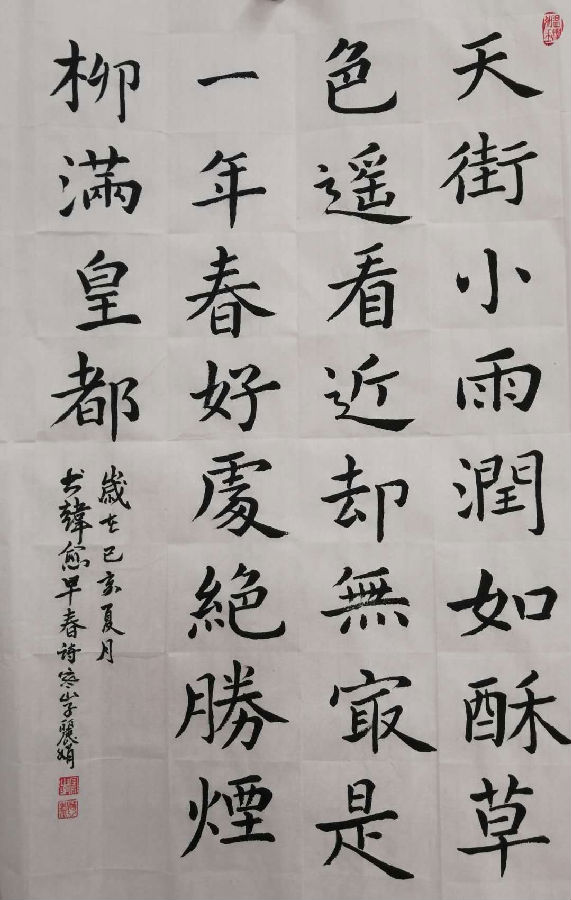 天街小雨潤如酥草
色遥看近却無㝡是
一年春好處絕勝煙
柳滿皇都
歲在己亥夏月
書韓愈早春詩 麗娟